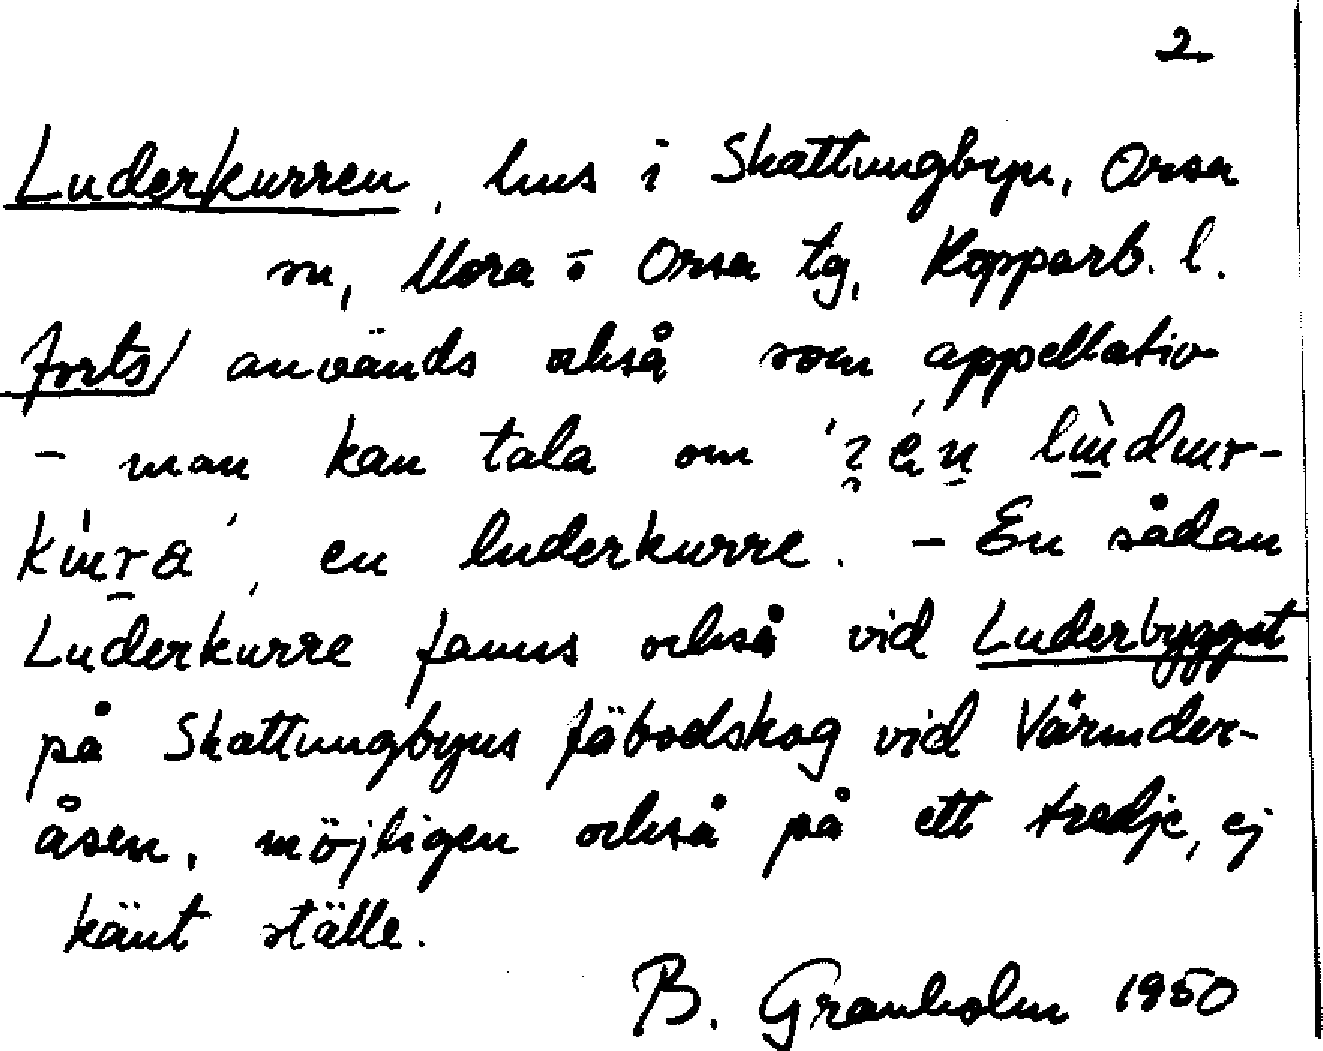 2
Luderkurren, hus i Skattungbyn, Orsa
sn, Mora o Orsa tg, Kopparb. l.
forts/ används också som appellativ
– man kan tala om
en luderkurre. – En sådan
Luderkurre fanns också vid Luderbygget
på Skattungbyns fäbodskog vid Vårinder-
åsen, möjligen också på ett tredje, ej
känt ställe.
B. Granholm 1950